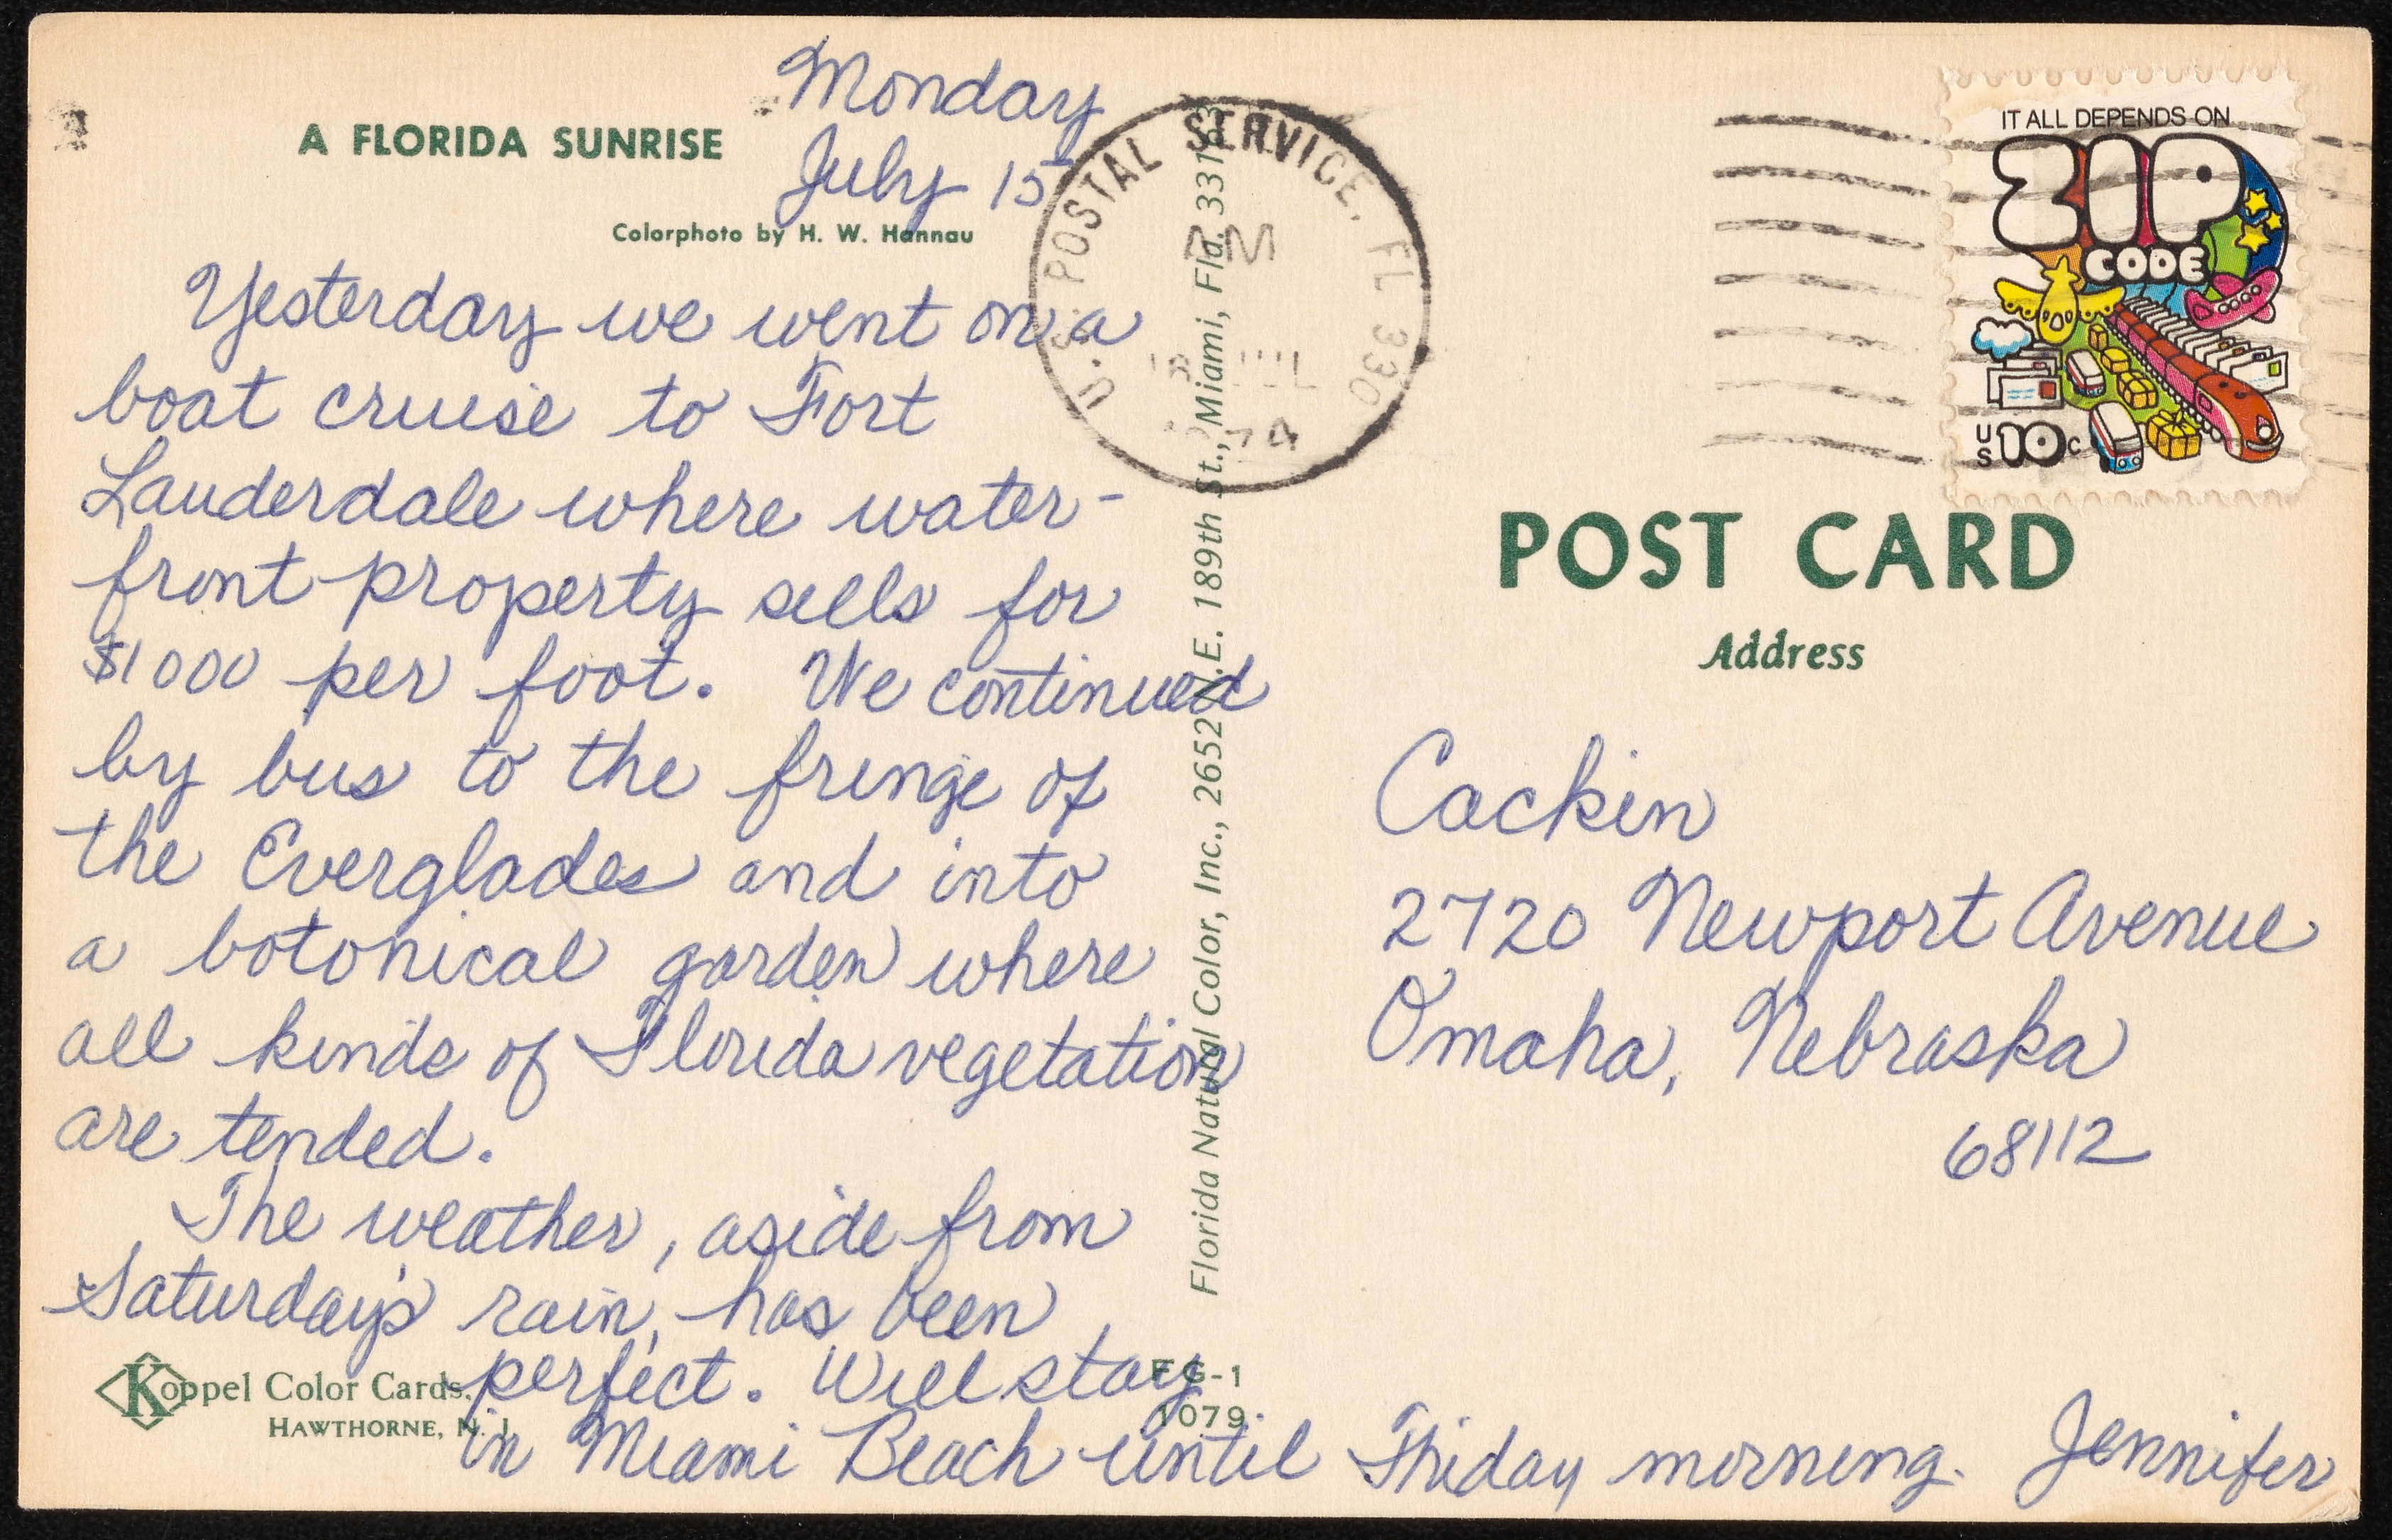 A FLORIDA SUNRISE
Colorphoto by H. W. Hannau
Monday
July 15
Yesterday we went on a
boat cruise to Fort
Lauderdale where water-
front property sells for
$1000 per foot. We continued
by bus to the fringe of
the Everglades and into
a botonical garden where
all kinds of Florida vegetation
are tended.
The weather, aside from
Saturday's rain, has been
perfect. Will stay
in Miami Beach until Friday morning. Jennifer
Koppel Color Cards
HAWTHORNE, N. J.
Florida Natural Color, Inc., 2652 N.E. 189th St., Miami, Fla. 33163
FG-1
1079
U.S. POSTAL SERVICE, FL 330
PM
JUL
74
IT ALL DEPENDS ON
ZIP
CODE
US 10c
POST CARD
Address
Cackin
2720 Newport Avenue
Omaha, Nebraska
68112